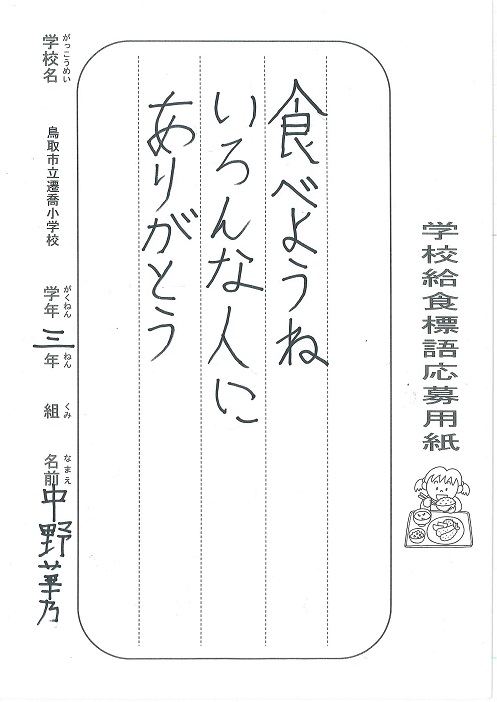 学校給食標語応募用紙
食べようね
いろんな人に
ありがとう
がっこうめい
学校名 鳥取市立遷喬小学校
がくねん ねん
学年 三年
くみ
組
なまえ
名前 中野華乃